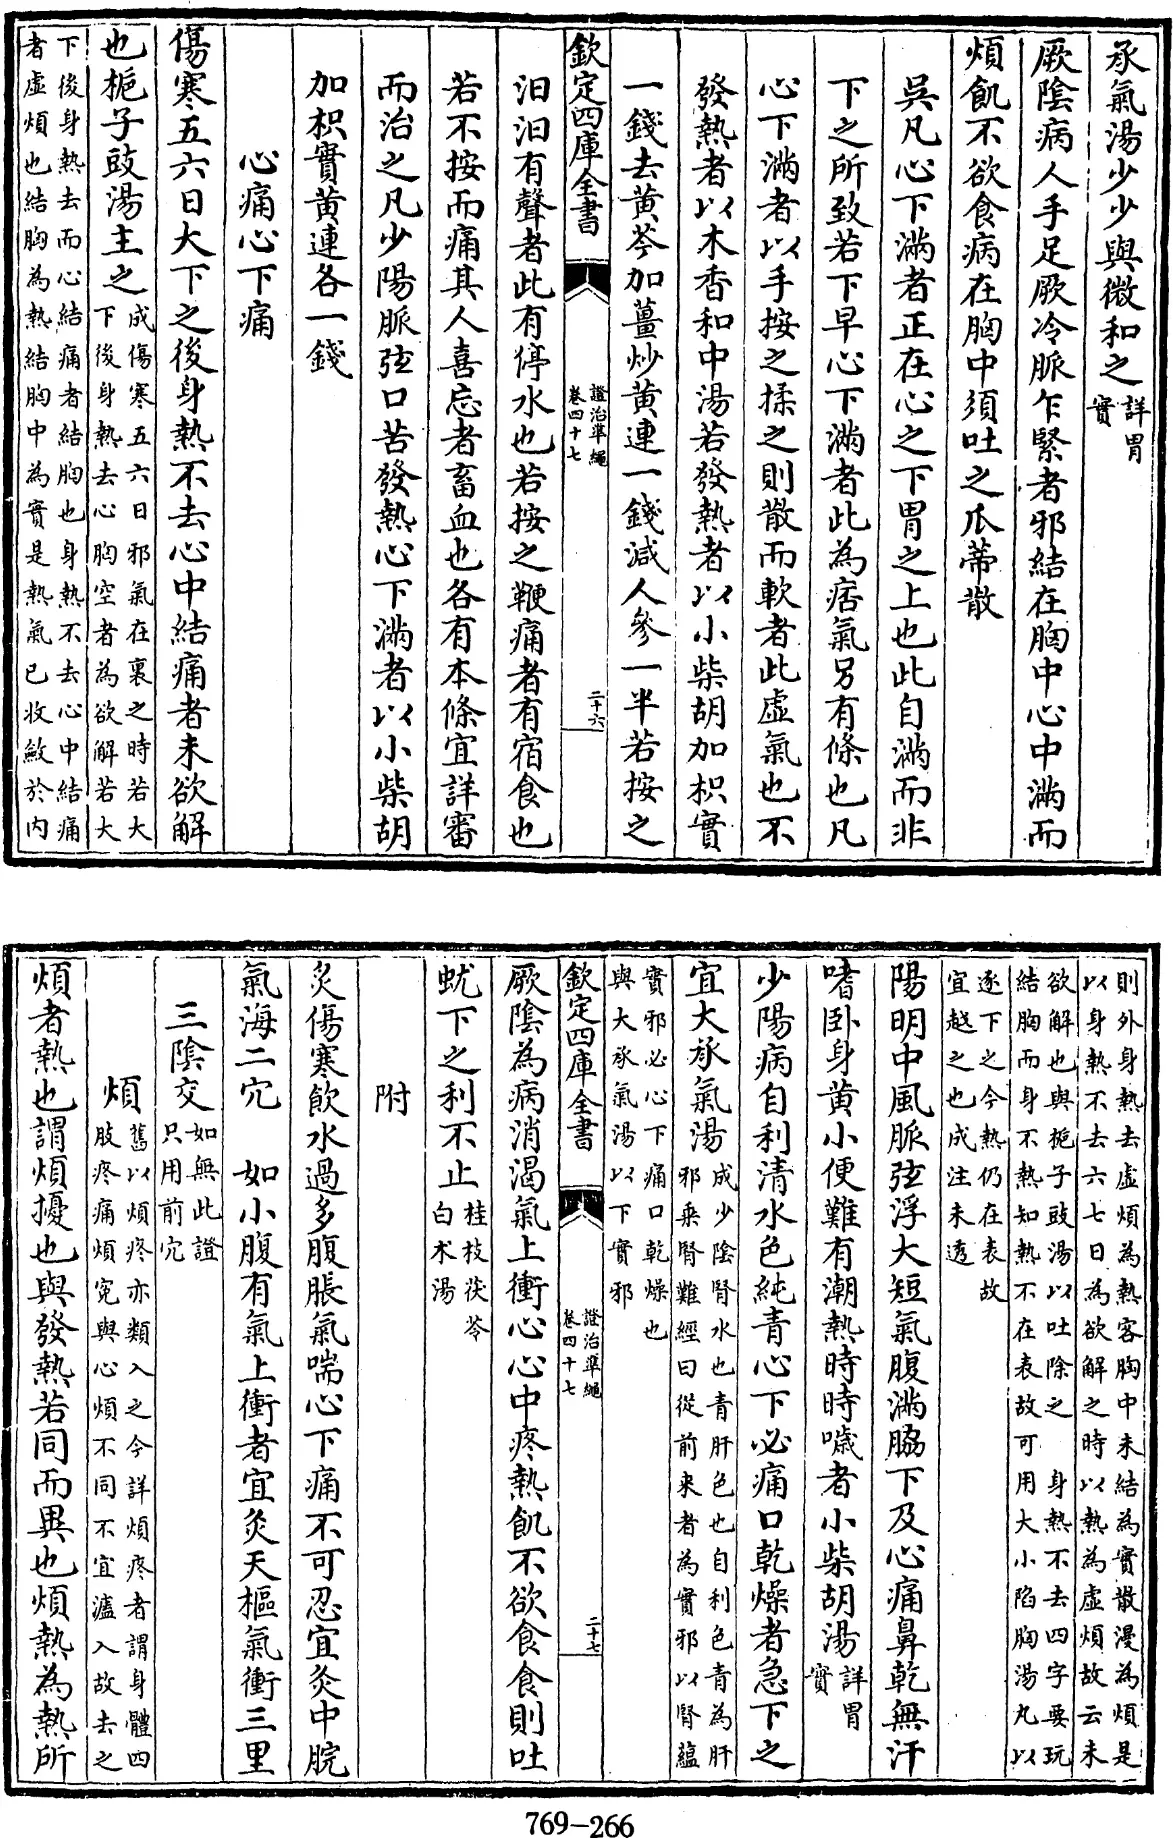 承氣湯少少與微和之詳胃
實
厥隂病人手足厥冷脈乍緊者邪結在胸中心中滿而
煩飢不欲食病在胸中須吐之瓜蒂散
吳凡心下滿者正在心之下胃之上也此自滿而非
下之所致若下早心下滿者此為痞氣另有條也凡
心下滿者以手按之揉之則散而軟者此虛氣也不
發熱者以木香和中湯若發熱者以小柴胡加枳實
一錢去黄芩加薑炒黄連一錢減人參一半若按之
欽定四庫全書
證治準繩
卷四十七
二十六
汨汨有聲者此有停水也若按之鞕痛者有宿食也
若不按而痛其人喜忘者畜血也各有本條宜詳審
而治之凡少陽脈弦口苦發熱心下滿者以小柴胡
加枳實黄連各一錢
心痛心下痛
傷寒五六日大下之後身熱不去心中結痛者未欲解
也梔子豉湯主之
成傷寒五六日邪氣在裏之時若大
下後身熱去心胸空者為欲解若大
下後身熱去而心結痛者結胸也身熱不去心中結痛
者虛煩也結胸為熱結胸中為實是熱氣已收斂於内
則外身熱去虛煩為熱客胸中未結為實散漫為煩是
以身熱不去六七日為欲解之時以熱為虛煩故云未
欲解也與梔子豉湯以吐除之 身熱不去四字要玩
結胸而身不熱知熱不在表故可用大小陷胸湯丸以
逐下之今熱仍在表故
宜越之也成注未透
陽明中風脈弦浮大短氣腹滿脇下及心痛鼻乾無汗
嗜卧身黄小便難有潮熱時時噦者小柴胡湯詳胃
實
少陽病自利清水色純青心下必痛口乾燥者急下之
宜大承氣湯
成少隂腎水也青肝色也自利色青為肝
邪乘腎難經曰從前来者為實邪以腎藴
實邪必心下痛口乾燥也
與大承氣湯以下實邪
欽定四庫全書
證治準繩
卷四十七
二十七
厥隂為病消渴氣上衝心心中疼熱飢不欲食食則吐
蚘下之利不止
桂枝茯苓
白术湯
附
灸傷寒飲水過多腹脹氣喘心下痛不可忍宜灸中脘
氣海二穴 如小腹有氣上衝者宜灸天樞氣衝三里
三隂交
如無此證
只用前穴
煩
舊以煩疼亦類入之今詳煩疼者謂身體四
肢疼痛煩寃與心煩不同不宜濫入故去之
煩者熱也謂煩擾也與發熱若同而異也煩熱為熱所
769-266